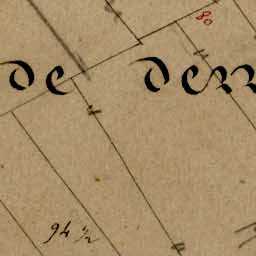 80
de
94 ½